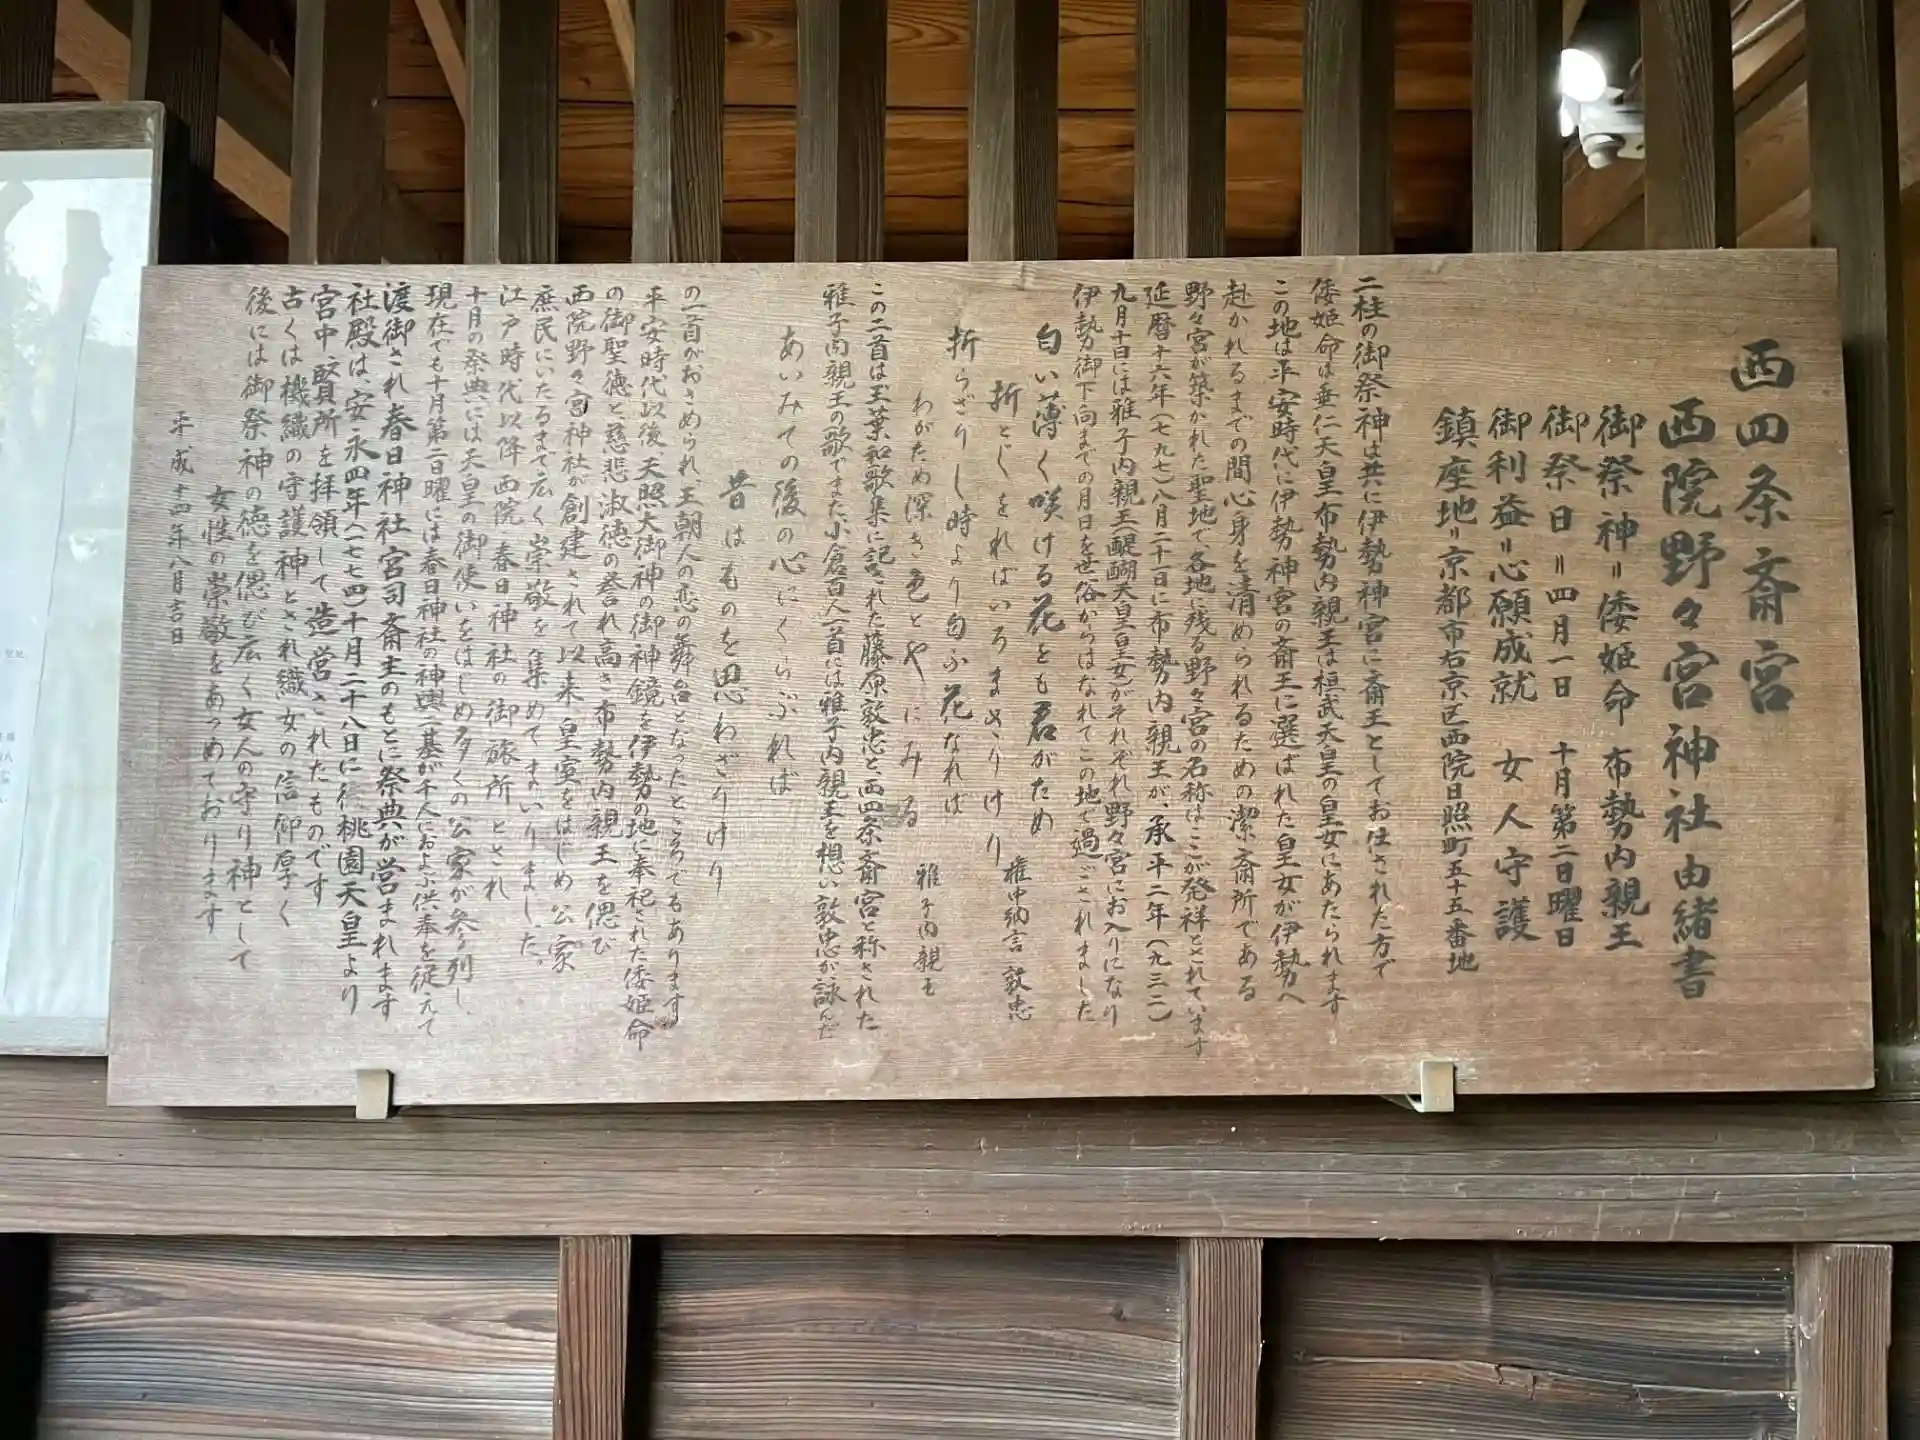 西四条斎宮
西院野々宮神社由緒書
御祭神＝倭姫命 布勢内親王
御祭日＝四月一日 十月第二日曜日
御利益＝心願成就 女人守護
鎮座地＝京都市右京区西院日照町五十五番地
二柱の御祭神は共に伊勢神宮に斎王としてお仕された方で
倭姫命は垂仁天皇布勢内親王は桓武天皇の皇女にあたられます
この地は平安時代に伊勢神宮の斎王に選ばれた皇女が伊勢へ
赴かれるまでの間心身を清められるための潔斎所である
野々宮が築かれた聖地で、各地に残る野々宮の名称はここが発祥とされています
延暦十六年（七九七）八月二十一日に布勢内親王が、承平二年（九三二）
九月十日には雅子内親王（醍醐天皇皇女）がそれぞれ野々宮にお入りになり
伊勢御下向までの月日を世俗からはなれてこの地で過ごされました
匂い薄く咲ける花をも君がため
折としをればいろまさりけり 権中納言 敦忠
折らざりし時より匂ふ花なれば
わがため深き色とやにみる 雅子内親王
この二首は玉葉和歌集に記された藤原敦忠と、西四条斎宮と称された
雅子内親王の歌でまた、小倉百人一首には雅子内親王を想い敦忠が詠んだ
あいみての後の心にくらぶれば
昔はものを思わざりけり
の一首がおさめられ、王朝人の恋の舞台となったところでもあります
平安時代以後、天照大御神の御神鏡を伊勢の地に奉祀された倭姫命
の御聖徳と、慈悲淑徳の誉れ高き布勢内親王を偲び
西院野々宮神社が創建されて以来皇室をはじめ公家
庶民にいたるまで広く崇敬を集めてまいりました。
江戸時代以降西院春日神社の御旅所とされ
十月の祭典には天皇の御使いをはじめ多くの公家が参列し、
現在でも十月第二日曜には春日神社の神輿二基が千人におよぶ供奉を従えて
渡御され春日神社宮司斎主のもとに祭典が営まれます
社殿は、安永四年（一七七四）十月二十八日に後桃園天皇より
宮中賢所を拝領して造営されたものです
古くは機織の守護神とされ織女の信仰厚く
後には御祭神の徳を偲び広く女人の守り神として
女性の崇敬をあつめております
平成十四年八月吉日